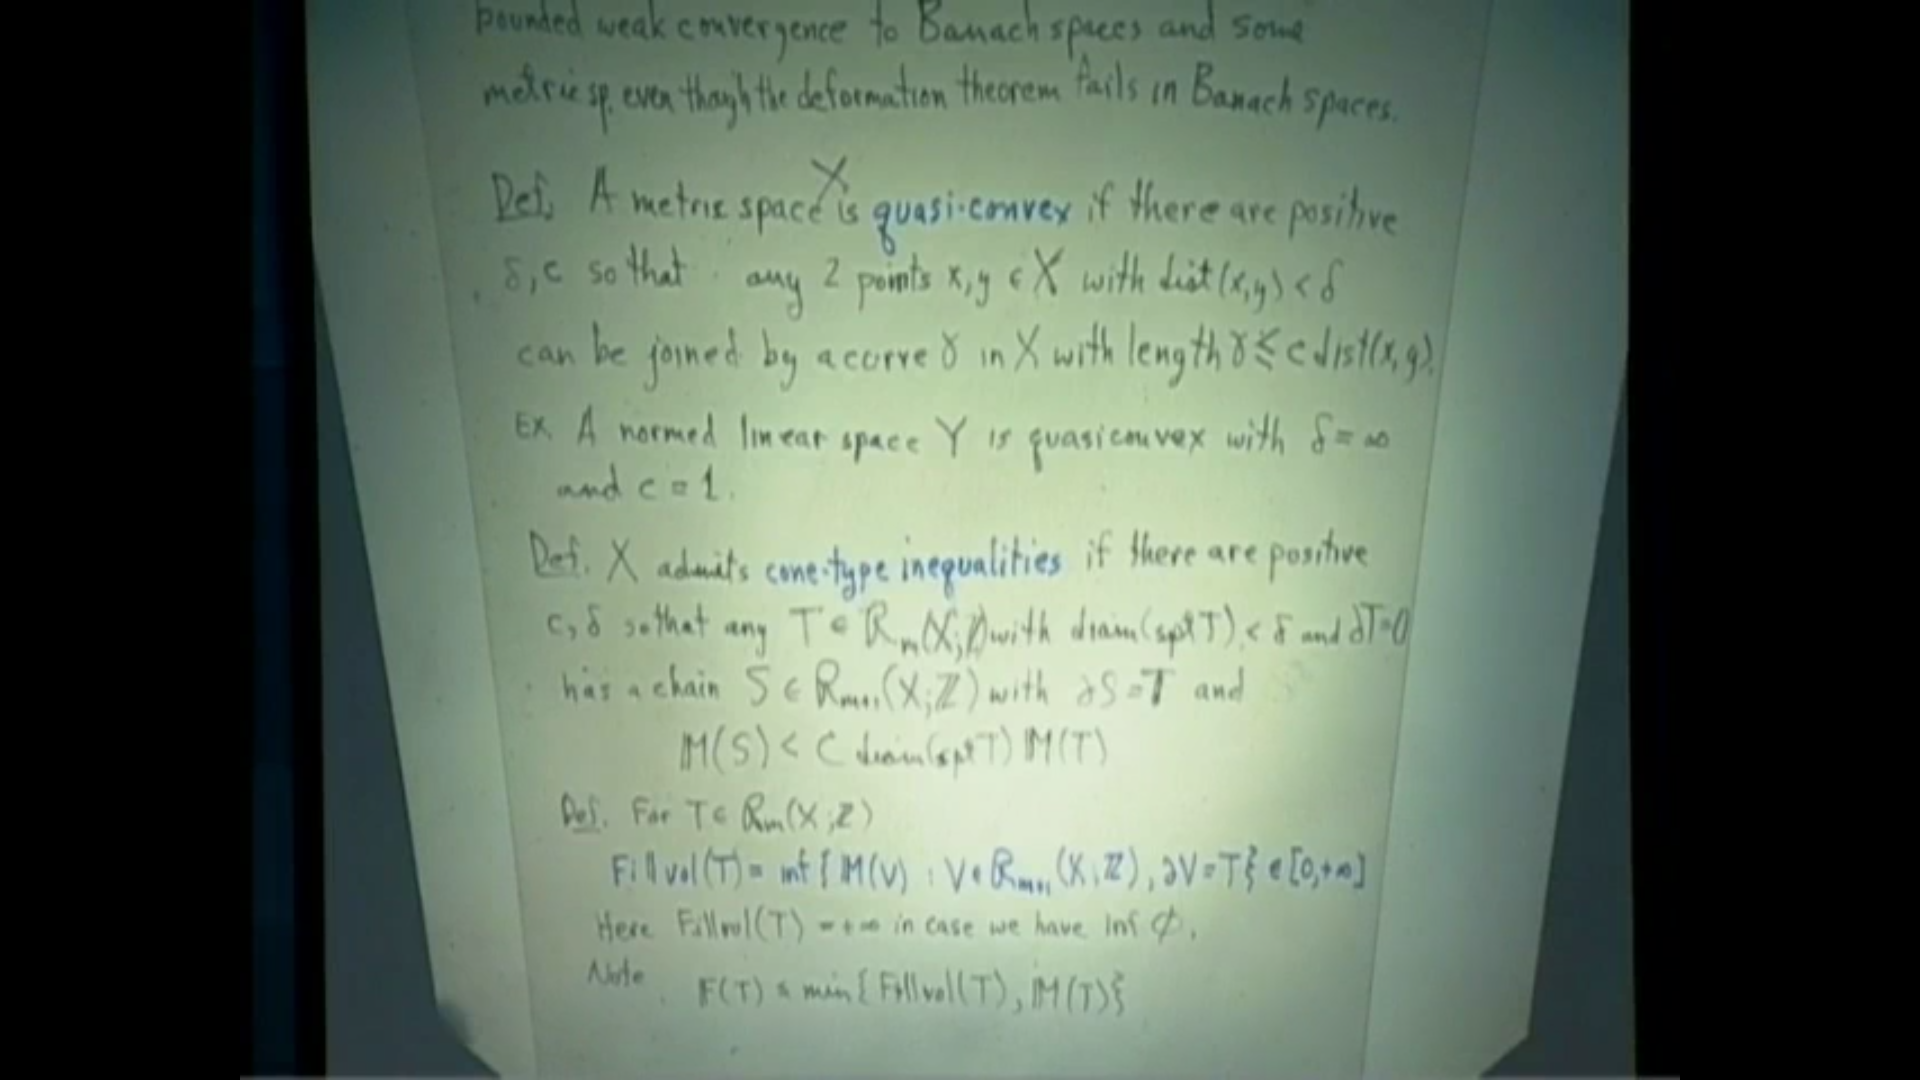 bounded weak convergence to Banach spaces and some
metric sp. even though the deformation theorem fails in Banach spaces.
Def. A metric space X is quasi-convex if there are positive
δ, c so that any 2 points x, y ∈ X with dist(x,y) < δ
can be joined by a curve γ in X with length γ ≤ c dist(x,y).
Ex. A normed linear space Y is quasiconvex with δ = ∞
and c = 1.
Def. X admits cone-type inequalities if there are positive
c, δ so that any T ∈ R_m(X;Z) with diam(spt T) < δ and ∂T=0
has a chain S ∈ R_{m+1}(X;Z) with ∂S = T and
M(S) < C diam(spt T) M(T)
Def. For T ∈ R_m(X;Z)
Fillvol(T) = inf { M(V) : V ∈ R_{m+1}(X;Z), ∂V = T } ∈ [0,+∞]
Here Fillvol(T) = +∞ in case we have inf ∅.
Note F(T) ≤ min{ Fillvol(T), M(T) }